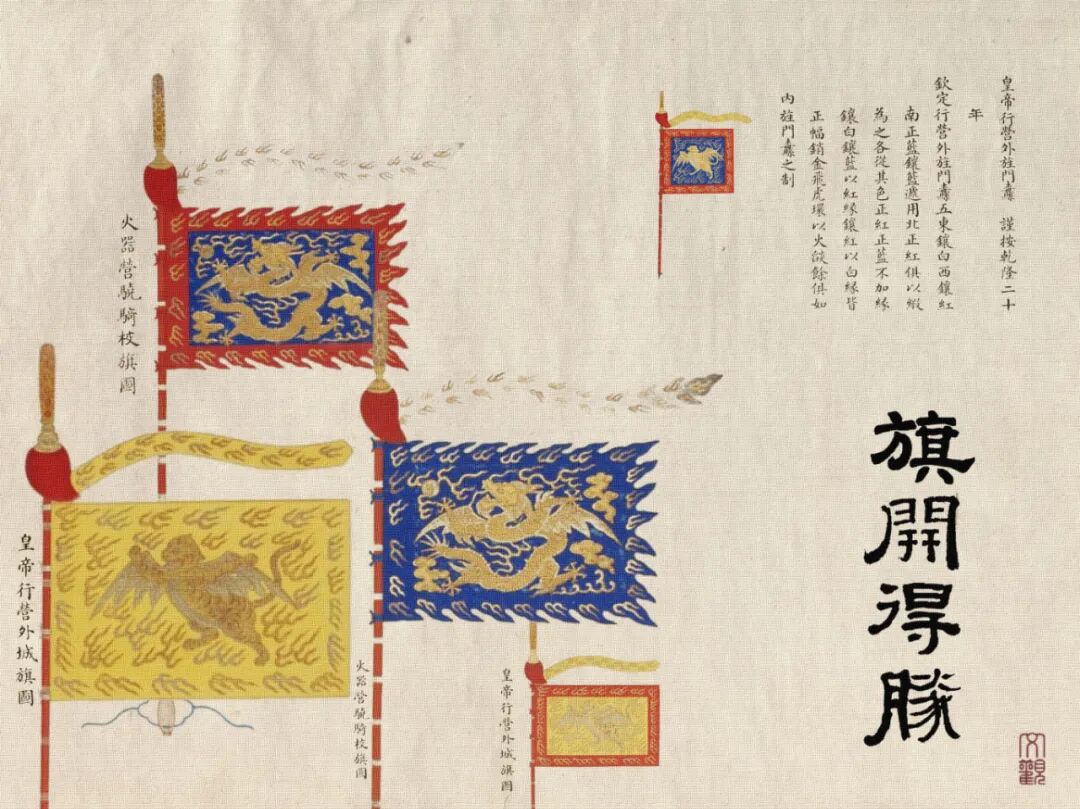 皇帝行營外旌門纛　謹按乾隆二十
年
欽定行營外旌門纛五東鑲白西鑲紅
南正藍鑲藍遞用北正紅俱以緞
為之各從其色正紅正藍不加緣
鑲白鑲藍以紅緣鑲紅以白緣皆
正幅銷金飛虎環以火燄餘俱如
內旌門纛之制
旗開得勝
文觀
火器營驍騎校旗圖
皇帝行營外城旗圖
火器營驍騎校旗圖
皇帝行營外城旗圖